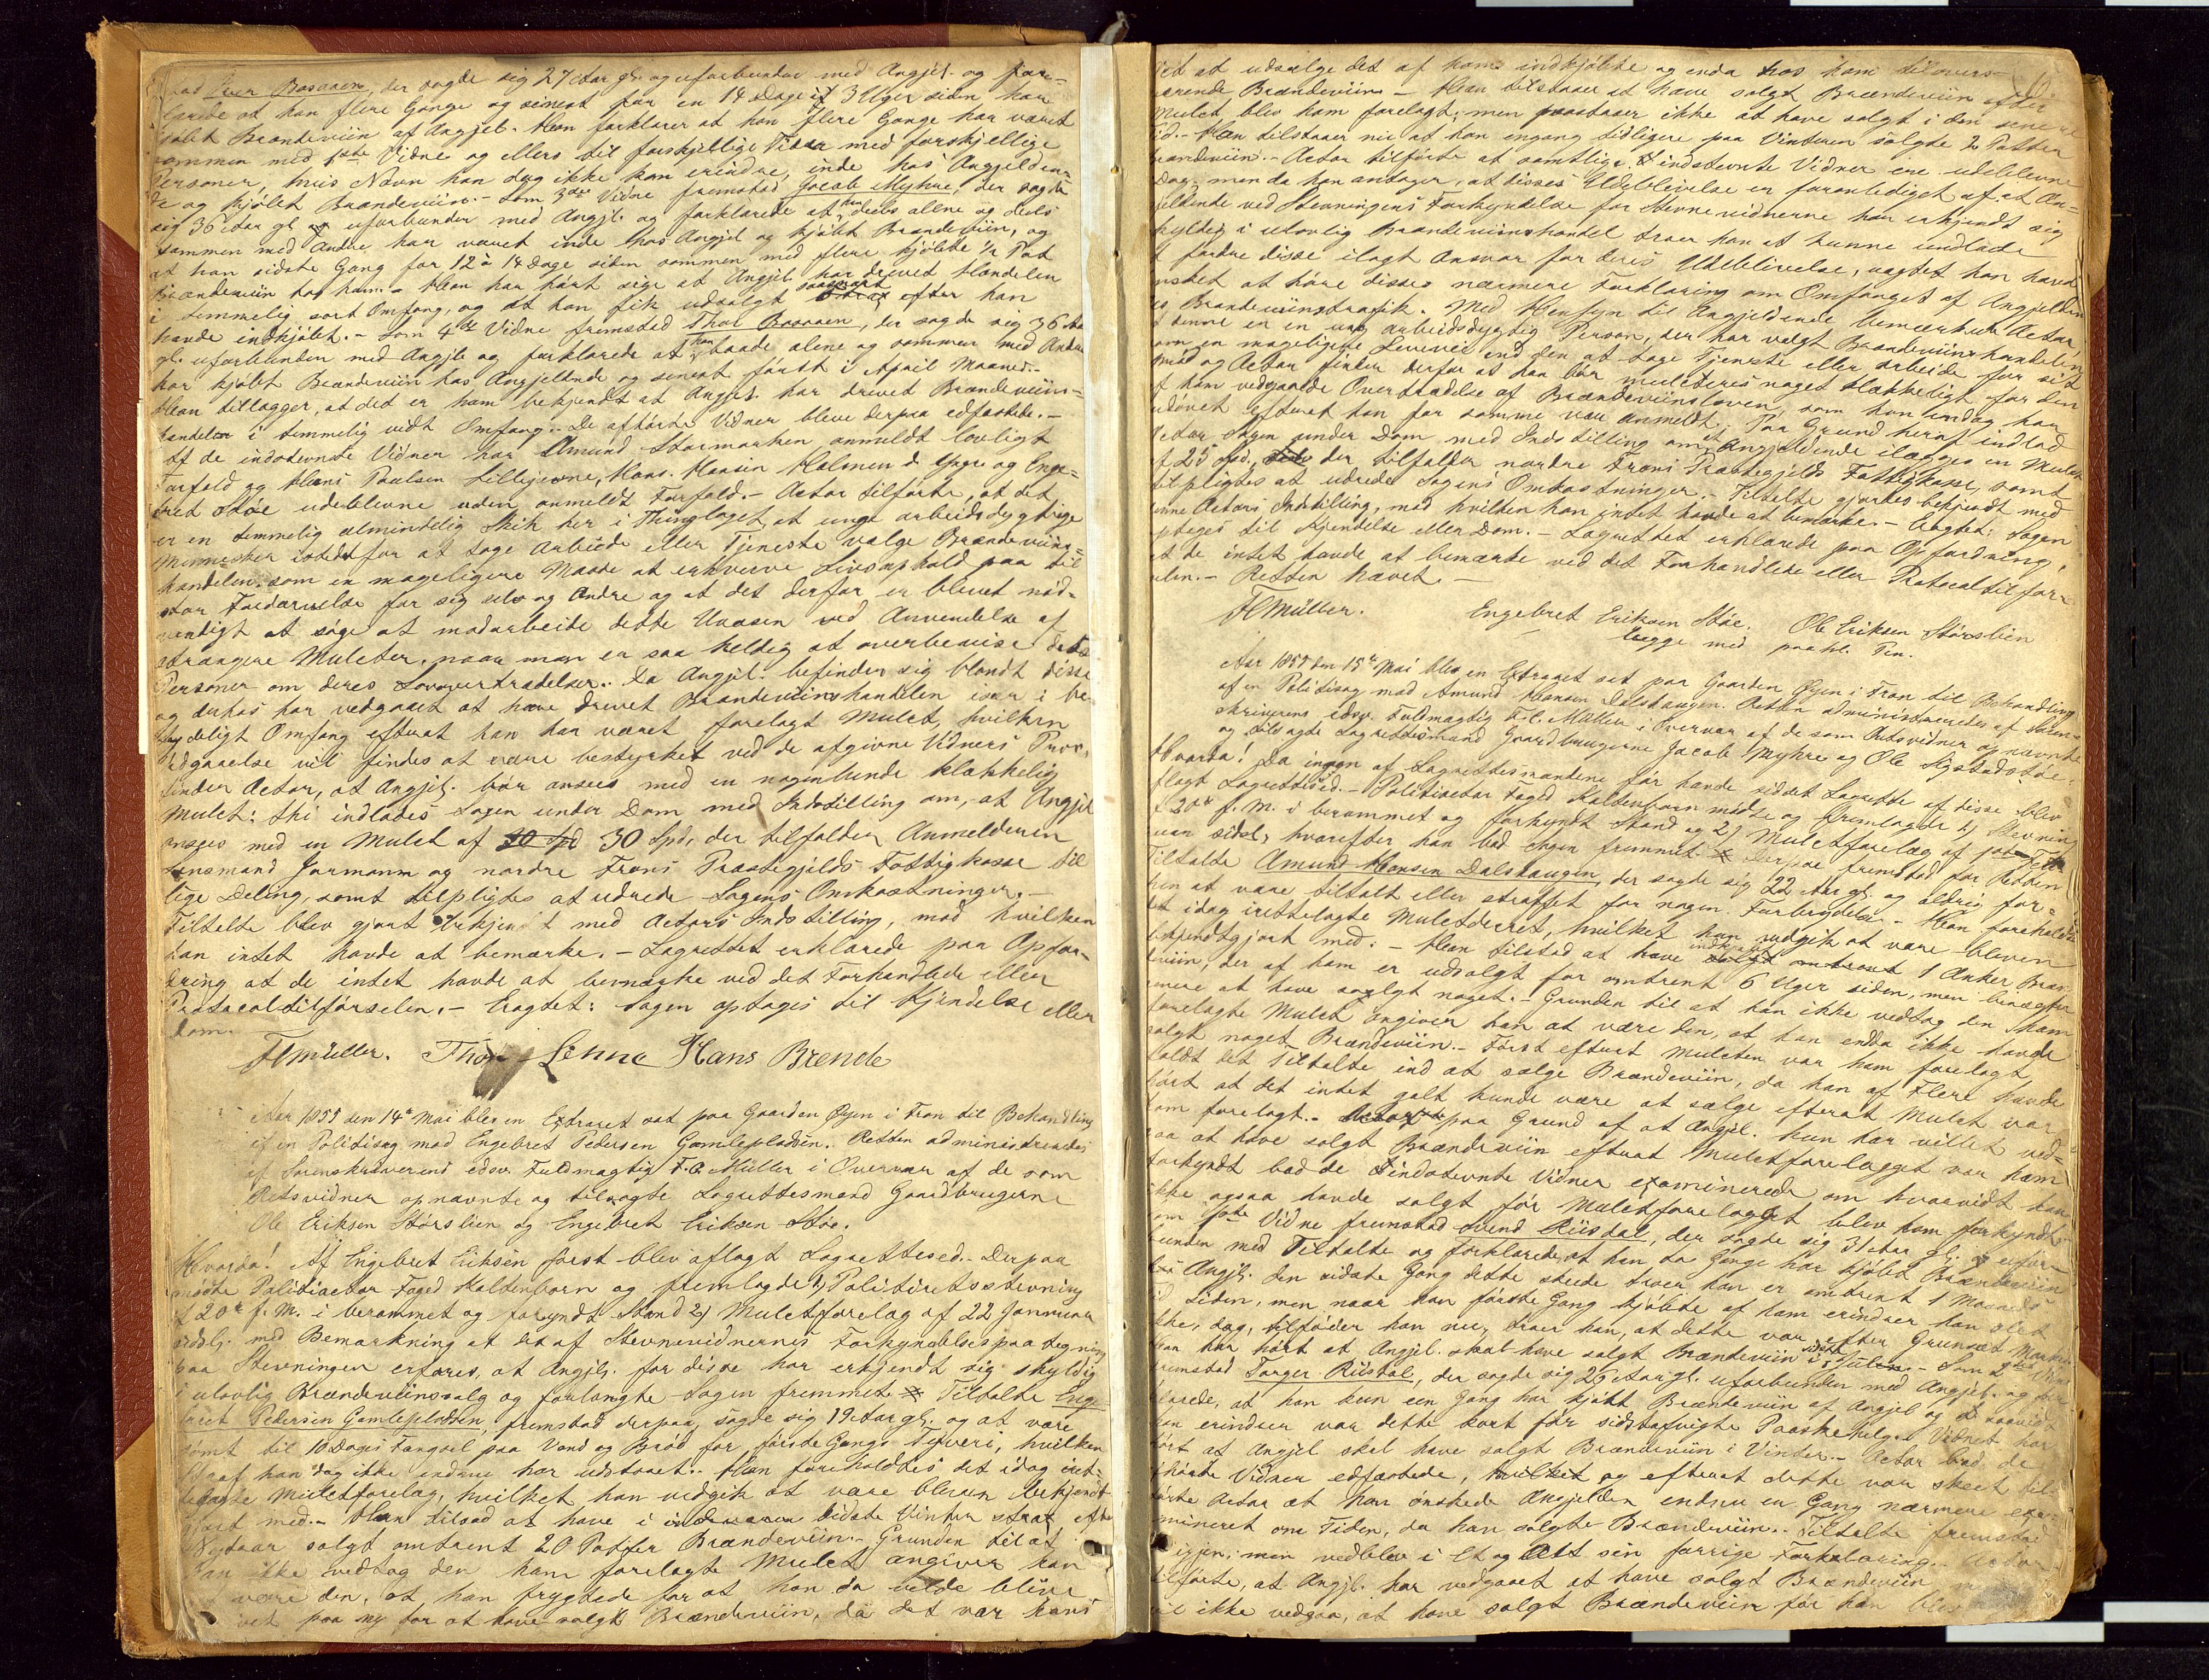 stad Iver Baraaen, der sagde sig 27 Aar gl. og uforbunden med Angjel. og for=
klarede at han flere Gange og senest for en 14 Dage à 3 Uger siden har
kjøbt Brændeviin af Angjel. Han forklarer at han flere Gange har været
sammen med 1ste Vidne og ellers til forskjellige Tider med forskjellige
Personer, hvis Navn han dog ikke kan erindre, inde hos Angjelden=
de og kjøbt Brændeviin. - Som 3die Vidne fremstod Jacob Myhre, der sagde
sig 36 Aar gl. og uforbunden med Angjl. og forklarede at han deels allene og deels
sammen med Andre har været inde hos Angjel og kjøbt Brændeviin, og
at han sidste Gang for 12 à 14 Dage siden sammen med flere kjøbte 1/2 Pot
Brændeviin hos ham. - Han har hørt sige at Angjel. har drevet Handelen
i temmelig stort Omfang, og at han fik udsolgt saasnart efter han
havde indkjøbt. - Som 4de Vidne fremstod Thor Baraaen, der sagde sig 36 Aar
gl. uforbunden med Angjl. og forklarede at han baade alene og sammen med Andre
har kjøbt Brændeviin hos Angjeldende og senest først i April Maaned. -
Han tillægger, at det er ham bekjendt at Angjel. har drevet Brændeviins=
handelen i temmelig vidt Omfang. - De afhørte Vidner bleve derpaa edfæstede. -
Af de indstevnte Vidner har Amund Stormorken anmeldt lovligt
Forfald og Hans Poulsen Lillejevne, Hans Hansen Holmen d. yngre og Enge=
bret Støe udeblevne uden anmeldt Forfald. - Actor tilførte, at det
er en temmelig almindelig Skik her i Thinglaget, at unge arbeidsdygtige
Mennesker istedetfor at søge Arbeide eller Tjeneste vælge Brændeviins=
handelen som en mageligere Maade at erhverve Livsophold paa til
stor Fordærvelse for sig selv og Andre og at det derfor er blevet nød=
vendigt at søge at modarbeide dette Uvæsen ved Anvendelse af
strængere Mulcter, naar man er saa heldig at overbevise dette
Personer om deres Lovovertrædelser. Da Angjel. befinder sig blandt disse
og derhos har vedgaaet at have drevet Brændeviinshandelen især i be=
tydeligt Omfang efterat han har været forelagt Mulct, hvilken
Vedgaaelse vil findes at være bestyrket ved de afgivne Vidners Prov,
finder Actor, at Angjel. bør ansees med en nogenlunde klækkelig
Mulct; thi indlades Sagen under Dom med Indstilling om, at Angjel
ansees med en Mulct af 30 Spd, der tilfalder Anmelderen
Lensmand Jormann og nordre Frons Præstegjelds Fattigkasse til
lige Deling, samt tilpligtes at udrede Sagens Omkostninger. -
Tiltalte blev gjort bekjendt med Actors Indstilling, mod hvilken
han intet havde at bemærke. - Lagrettet erklærede paa Opfor=
dring at de intet havde at bemærke ved det Forhandlede eller
Protocoltilførselen. - Eragtet: Sagen optages til Kjendelse eller
Dom.
FCMüller. Thor Lenne Hans Brende
Aar 1855 den 14de Mai blev en Extraret sat paa Gaarden Øyen i Fron til Behandling
af en Politisag mod Engebret Pedersen Gamlepladsen. Retten administreredes
af Sorenskriverens edsv. Fuldmægtig F. C. Müller i Overvær af de som
Retsvidner opnævnte og tilsagte Lagrettesmænd Gaardbrugerne
Ole Eriksen Størslien og Engebret Eriksen Støe.
Hvorda! Af Engebret Eriksen først blev aflagt Lagrettesed. Derpaa
mødte Politiactor Foged Koltenborn og fremlagde 1) Politiretsstevning
af 20de f. M. i berammet og forkyndt Stand 2) Mulctforelæg af 22 Januar
sidstl. med Bemærkning at det af Stevnevidnernes Forkyndelsespaategning
paa Stevningen erfares, at Angjl. for disse har erkjendt sig skyldig
i ulovlig Brændeviinssalg og forlangte Sagen fremmet. Tiltalte Enge=
bret Pedersen Gamlepladsen, fremstod derpaa, sagde sig 19 Aar gl. og at være
dømt til 10 Dages Fængsel paa Vand og Brød for første Gangs Tyveri, hvilken
Straf han dog ikke endnu har udstaaet. Han foreholdtes det idag iret=
telagte Mulctforelæg, hvilket han vedgik at være bleven bekjendt=
gjort med. - Han tilstod at have i sidste Vinter strax efter
Nytaar solgt omtrent 20 Potter Brændeviin. - Grunden til at
han ikke vedtog den ham forelagte Mulct angiver han
at være den, at han frygtede for at han da vilde blive
vet paa ny for at have solgt Brændeviin, da det var hans
Agt at udsælge det af ham indkjøbte og enda hos ham tilovers=
værende Brændeviin. - Han tilstaaer at have solgt Brændeviin efter
Mulct blev ham forelagt; men paastaaer ikke at have solgt i den senere
Tid. - Han tilstaaer nu at han engang tidligere paa Vinteren solgte 2 Potter
Brændeviin. - Actor tilførte at samtlige indstevnte Vidner ere udeblevne
Dag; men da han antager, at disses Udeblivelse er foranlediget af at An=
gjeldende ved Stevningens Forkyndelse for Stevnevidnerne har erkjendt sig
skyldig i ulovlig Brændeviinshandel troer han at kunne undlade
at fordre disse ilagt Ansvar for deres Udeblivelse, uagtet han havde
ønsket at høre disses nærmere Forklaring om Omfanget af Angjelden
es Brændeviinstrafik. Med Hensyn til Angjeldende bemærkede Actor,
at denne er en ung arbeidsdygtig Person, der har valgt Brændeviinshandelen
som en mageligere Levevei end den at tage Tjeneste eller arbeide for sit
Brød og Actor finder derfor at han bør mulcteres noget klækkeligt for den
af ham vedgaaede Overtrædelse af Brændeviinsloven, som han endog har
udøvet efterat han for samme var anmeldt. Paa Grund heraf indlod
Actor Sagen under Dom med Indstilling om at Angjeldende ilægges en Mulct
af 25 Spd., der tilfalder nordre Frons Præstegjelds Fattigkasse, samt
tilpligtes at udrede Sagens Omkostninger. - Tiltalte gjordes bekjendt med
denne Actors Indstilling, mod hvilken han intet havde at bemærke. - Eragtet: Sagen
optages til Kjendelse eller Dom. - Lagrettet erklærede paa Opfordring,
at de intet havde at bemærke ved det Forhandlede eller Protocoltilfør=
selen. - Retten hævet. -
FCMüller. Engebret Eriksen Støe. Ole Eriksen Størslien
begge med paaholden Pen.
Aar 1855 den 15de Mai blev en Extraret sat paa Gaarden Øyen i Fron til Behandling
af en Politisag mod Amund Hansen Dalshaugen. Retten administreredes af Soren=
skriverens edsv. Fuldmægtig F. C. Müller i Overvær af de som Retsvidner opnævnte
og tilsagte Lagrettesmænd Gaardbrugerne Jacob Myhre og Ole Sigstadstøe.
Hvorda! Da ingen af Lagrettesmændene før havde siddet Lagrette af disse blev
aflagt Lagrettesed. - Politiactor Foged Koltenborn mødte og fremlagde 1) Stevning
af 20de f. M. i berammet og forkyndt Stand og 2) Mulctforelæg af
sidstl. hvorefter han bad Sagen fremmet. Derpaa fremstod for Retten
Tiltalte Amund Hansen Dalshaugen, der sagde sig 22 Aar gl. og aldrig for=
hen at være tiltalt eller straffet for nogen Forbrydelse. - Han foreholdtes
det idag irettelagte Mulctforelæg, hvilket han vedgik at være bleven
bekjendtgjort med. - Han tilstod at have indkjøbt 1 Anker Bræn=
deviin, der af ham er udsolgt for omtrent 6 Uger siden, men benægter
senere at have solgt noget. - Grunden til at han ikke vedtog den ham
forelagte Mulct angiver han at være den, at han endda ikke havde
solgt noget Brændeviin. - Først efterat Mulcten var ham forelagt
faldt det Tiltalte ind at sælge Brændeviin, da han af Flere havde
hørt at det intet galt kunde være at sælge efterat Mulct var
ham forelagt. - Actor paa Grund af at Angjl. kun har villet ved=
gaa at have solgt Brændeviin efterat Mulctforelægget var ham
forkyndt bad de indstevnte Vidner examinerede om hvorvidt han
ikke ogsaa havde solgt før Mulctforelægget blev ham forkyndt.
Som 1ste Vidne fremstod Svend Riisdal, der sagde sig 31 Aar gl. og ufor=
bunden med Tiltalte og forklarede, at han to Gange har kjøbt Brændeviin
hos Angjl. Den sidste Gang dette skeede troer han er omtrent 1 Maaneds
Tid siden, men naar han første Gang kjøbte af ham erindrer han slet
ikke, dog, tilføier han nu, troer han, at dette var efter Grunset Marked.
Han har hørt at Angjel. skal have solgt Brændeviin sidste Julen. - Som 2det Vidne
fremstod Torger Riisdal, der sagde sig 25 Aar gl. uforbunden med Angjel. og for=
klarede, at han kun een Gang har kjøbt Brændeviin af Angjel og saavidt
han erindrer var dette kort før sidstafvigte Paaskehelg. Vidnet har
hørt at Angjel skal have solgt Brændeviin i Vinter. - Actor bad de
afhørte Vidner edfæstede, og efterat dette var skeet til=
førte Actor at han ønskede Angjelden endnu en Gang nærmere exa=
mineret om Tiden, da han solgte Brændeviin. - Tiltalte fremstod
igjen; men vedblev i Et og Alt sin forrige Forklaring. - Actor
tilførte, at Angjl. har vedgaaet at have solgt Brændeviin
vil ikke vedgaa, at have solgt Brændeviin før han blev